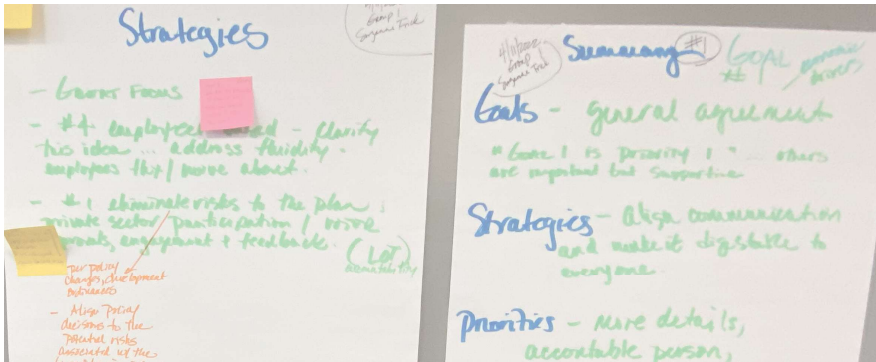 Group 1
Suzanne Frick
Strategies
- Focus
- #4 employees - Clarify
this idea ... address fluidity.
employees flux / move about.
- #1 eliminate risks to the plan;
private sector participation / more
engagement + feedback.
(LOT)
accountability
- per policy
changes, development
- Align Policy
decisions to the
potential risks
associated w/ the
4/11/2022
Group
Suzanne Frick
Summary #1
GOAL
#
economic
drivers
Goals - general agreement
"Goal 1 is priority 1" ... others
are important but supportive
Strategies - Align communication
and make it digestable to
everyone
Priorities - More details,
accountable person,